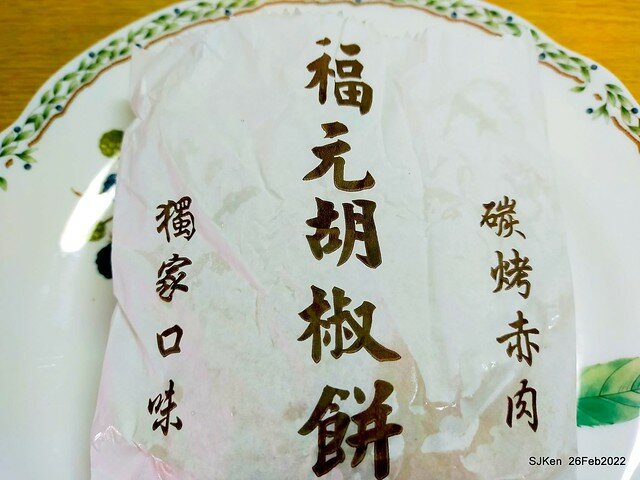 碳烤赤肉
福元胡椒餅
獨家口味
SJKen 26Feb2022